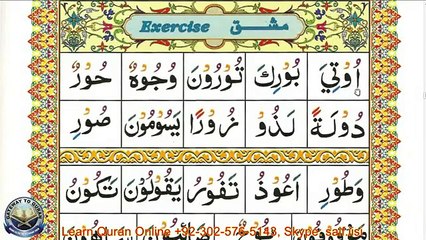 Exercise مشق
اُوْتِيَ بُوْرِكَ تُوْرُوْنَ وُجُوْهٌ حُوْرٌ
دُوْلَةً لَذُوْ زُوْرًا يَسُوْمُوْنَ صُوْرِ
وَطُوْرِ اَعُوْذُ تَفُوْرُ يَقُوْلُوْنَ تَكُوْنُ
Learn Quran Online +92-302-576-5143, Skype: saffust